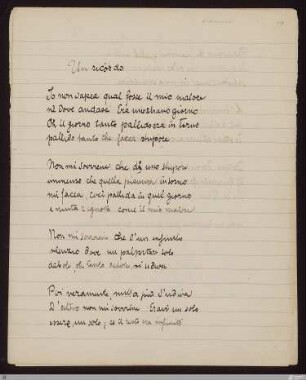 Un ricordo
Io non sapea qual fosse il mio malore
nè dove andassi. Era uno strano giorno.
Oh, il giorno tanto pallido era in torno
pallido tanto che facea stupore
Non mi sovviene che di uno stupore
immenso che quella pianura intorno
mi facea, così pallida in quel giorno
e muta, e ignota come il mio malore
Non mi sovviene che d'un infinito
silenzio dove un palpitare solo
debole, oh tanto debole si udiva
Poi veramente, nulla più s'udiva
D'altro non mi sovviene. Eravi un solo
essere, un solo; e il resto era infinito